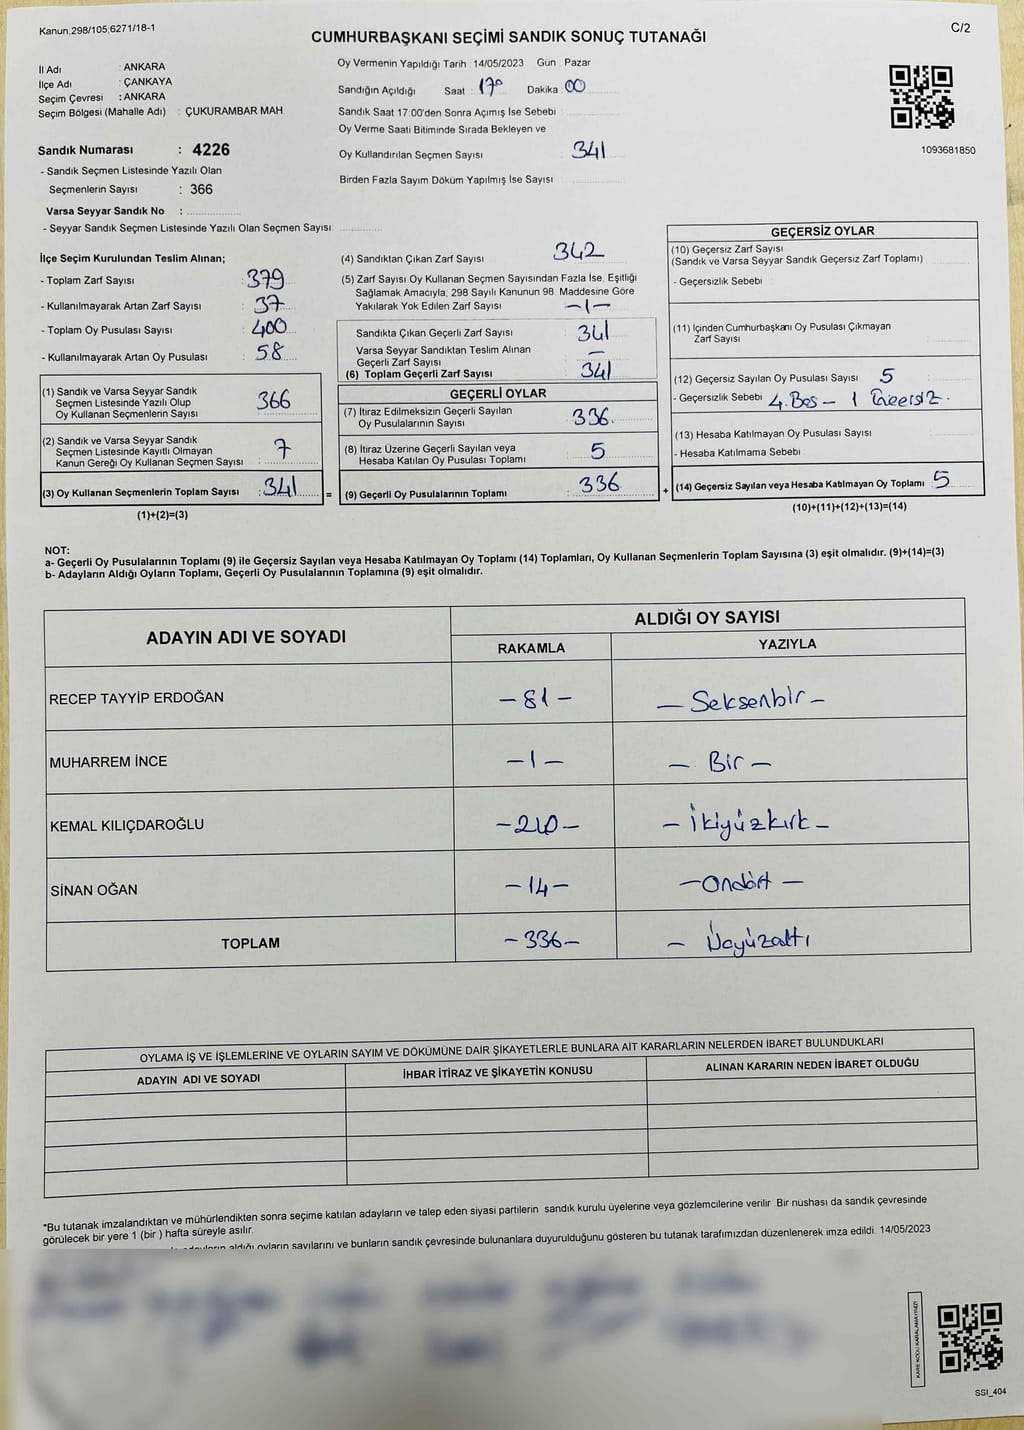 Kanun;298/105;6271/18-1
C/2
CUMHURBAŞKANI SEÇİMİ SANDIK SONUÇ TUTANAĞI
İl Adı : ANKARA
İlçe Adı : ÇANKAYA
Seçim Çevresi : ANKARA
Seçim Bölgesi (Mahalle Adı) : ÇUKURAMBAR MAH.
Oy Vermenin Yapıldığı Tarih : 14/05/2023 Gün : Pazar
Sandığın Açıldığı Saat : 17⁰ Dakika : 00
Sandık Saat 17:00'den Sonra Açımış İse Sebebi
Oy Verme Saati Bitiminde Sırada Bekleyen ve
Oy Kullandırılan Seçmen Sayısı 341
Birden Fazla Sayım Döküm Yapılmış İse Sayısı
1093681850
Sandık Numarası : 4226
- Sandık Seçmen Listesinde Yazılı Olan
Seçmenlerin Sayısı : 366
Varsa Seyyar Sandık No :
- Seyyar Sandık Seçmen Listesinde Yazılı Olan Seçmen Sayısı:
İlçe Seçim Kurulundan Teslim Alınan;
- Toplam Zarf Sayısı : 379
- Kullanılmayarak Artan Zarf Sayısı : 37
- Toplam Oy Pusulası Sayısı : 400
- Kullanılmayarak Artan Oy Pusulası : 58
(1) Sandık ve Varsa Seyyar Sandık
Seçmen Listesinde Yazılı Olup
Oy Kullanan Seçmenlerin Sayısı 366
(2) Sandık ve Varsa Seyyar Sandık
Seçmen Listesinde Kayıtlı Olmayan
Kanun Gereği Oy Kullanan Seçmen Sayısı : 7
(3) Oy Kullanan Seçmenlerin Toplam Sayısı : 341 =
(1)+(2)=(3)
(4) Sandıktan Çıkan Zarf Sayısı 342
(5) Zarf Sayısı Oy Kullanan Seçmen Sayısından Fazla İse, Eşitliği
Sağlamak Amacıyla, 298 Sayılı Kanunun 98. Maddesine Göre
Yakılarak Yok Edilen Zarf Sayısı -1-
Sandıkta Çıkan Geçerli Zarf Sayısı 341
Varsa Seyyar Sandıktan Teslim Alınan
Geçerli Zarf Sayısı —
(6) Toplam Geçerli Zarf Sayısı 341
GEÇERLİ OYLAR
(7) İtiraz Edilmeksizin Geçerli Sayılan
Oy Pusulalarının Sayısı 336
(8) İtiraz Üzerine Geçerli Sayılan veya
Hesaba Katılan Oy Pusulası Toplamı 5
(9) Geçerli Oy Pusulalarının Toplamı 336 +
GEÇERSİZ OYLAR
(10) Geçersiz Zarf Sayısı
(Sandık ve Varsa Seyyar Sandık Geçersiz Zarf Toplamı)
- Geçersizlik Sebebi
(11) İçinden Cumhurbaşkanı Oy Pusulası Çıkmayan
Zarf Sayısı
(12) Geçersiz Sayılan Oy Pusulası Sayısı 5
- Geçersizlik Sebebi 4. Boş - 1
(13) Hesaba Katılmayan Oy Pusulası Sayısı
- Hesaba Katılmama Sebebi
(14) Geçersiz Sayılan veya Hesaba Katılmayan Oy Toplamı : 5
(10)+(11)+(12)+(13)=(14)
NOT:
a- Geçerli Oy Pusulalarının Toplamı (9) ile Geçersiz Sayılan veya Hesaba Katılmayan Oy Toplamı (14) Toplamları, Oy Kullanan Seçmenlerin Toplam Sayısına (3) eşit olmalıdır. (9)+(14)=(3)
b- Adayların Aldığı Oyların Toplamı, Geçerli Oy Pusulalarının Toplamına (9) eşit olmalıdır.
ADAYIN ADI VE SOYADI
ALDIĞI OY SAYISI
RAKAMLA YAZIYLA
RECEP TAYYİP ERDOĞAN -81- - Seksenbir -
MUHARREM İNCE -1- - Bir -
KEMAL KILIÇDAROĞLU -240- - İkiyüzkırk -
SİNAN OĞAN -14- - Ondört -
TOPLAM -336- - Üçyüzaltı
OYLAMA İŞ VE İŞLEMLERİNE VE OYLARIN SAYIM VE DÖKÜMÜNE DAİR ŞİKAYETLERLE BUNLARA AİT KARARLARIN NELERDEN İBARET BULUNDUKLARI
ADAYIN ADI VE SOYADI İHBAR İTİRAZ VE ŞİKAYETİN KONUSU ALINAN KARARIN NEDEN İBARET OLDUĞU
*Bu tutanak imzalandıktan ve mühürlendikten sonra seçime katılan adayların ve talep eden siyasi partilerin sandık kurulu üyelerine veya gözlemcilerine verilir. Bir nüshası da sandık çevresinde
görülecek bir yere 1 (bir ) hafta süreyle asılır.
aldığı oyların sayılarını ve bunların sandık çevresinde bulunanlara duyurulduğunu gösteren bu tutanak tarafımızdan düzenlenerek imza edildi. 14/05/2023
KARE KODU KARALAMAYINIZ!
SSI_404